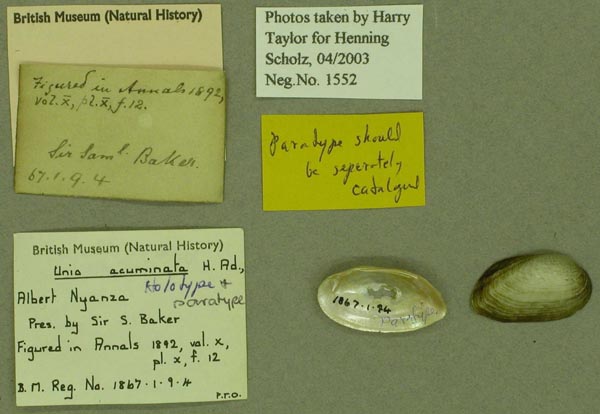 British Museum (Natural History)
Figured in Annals 1892,
vol. X, pl. X, f. 12.
Sir Saml. Baker.
67.1.9.4
Photos taken by Harry
Taylor for Henning
Scholz, 04/2003
Neg.No. 1552
Paratype should
be seperately
catalogued
British Museum (Natural History)
Unio acuminata H. Ad.,
Holotype +
paratype
Albert Nyanza
Pres. by Sir S. Baker
Figured in Annals 1892, vol. x,
pl. x, f. 12
B.M. Reg. No. 1867.1.9.4
P.T.O.
1867.1.94
Paratype